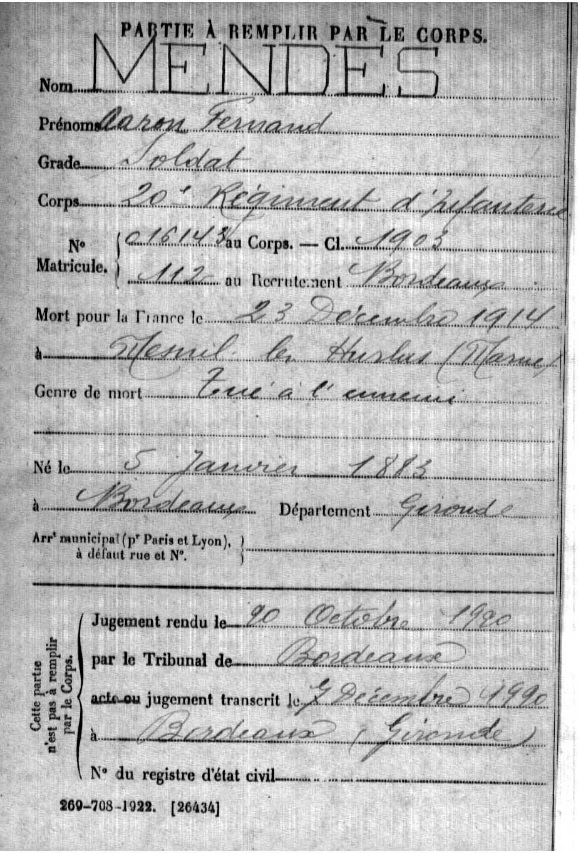 PARTIE À REMPLIR PAR LE CORPS.
Nom MENDES
Prénoms Aaron Fernand
Grade Soldat
Corps 20e Régiment d'Infanterie
N° Matricule. { 016143 au Corps. — Cl. 1903
112 au Recrutement Bordeaux
Mort pour la France le 23 Décembre 1914
à Mesnil les Hurlus (Marne)
Genre de mort Tué à l'ennemi
Né le 5 Janvier 1883
à Bordeaux Département Gironde
Arrt municipal (pr Paris et Lyon),
à défaut rue et N°. }
Cette partie n'est pas à remplir par le Corps.
Jugement rendu le 20 Octobre 1920
par le Tribunal de Bordeaux
acte ou jugement transcrit le 7 Décembre 1920
à Bordeaux (Gironde)
N° du registre d'état civil
269-708-1922. [26434]